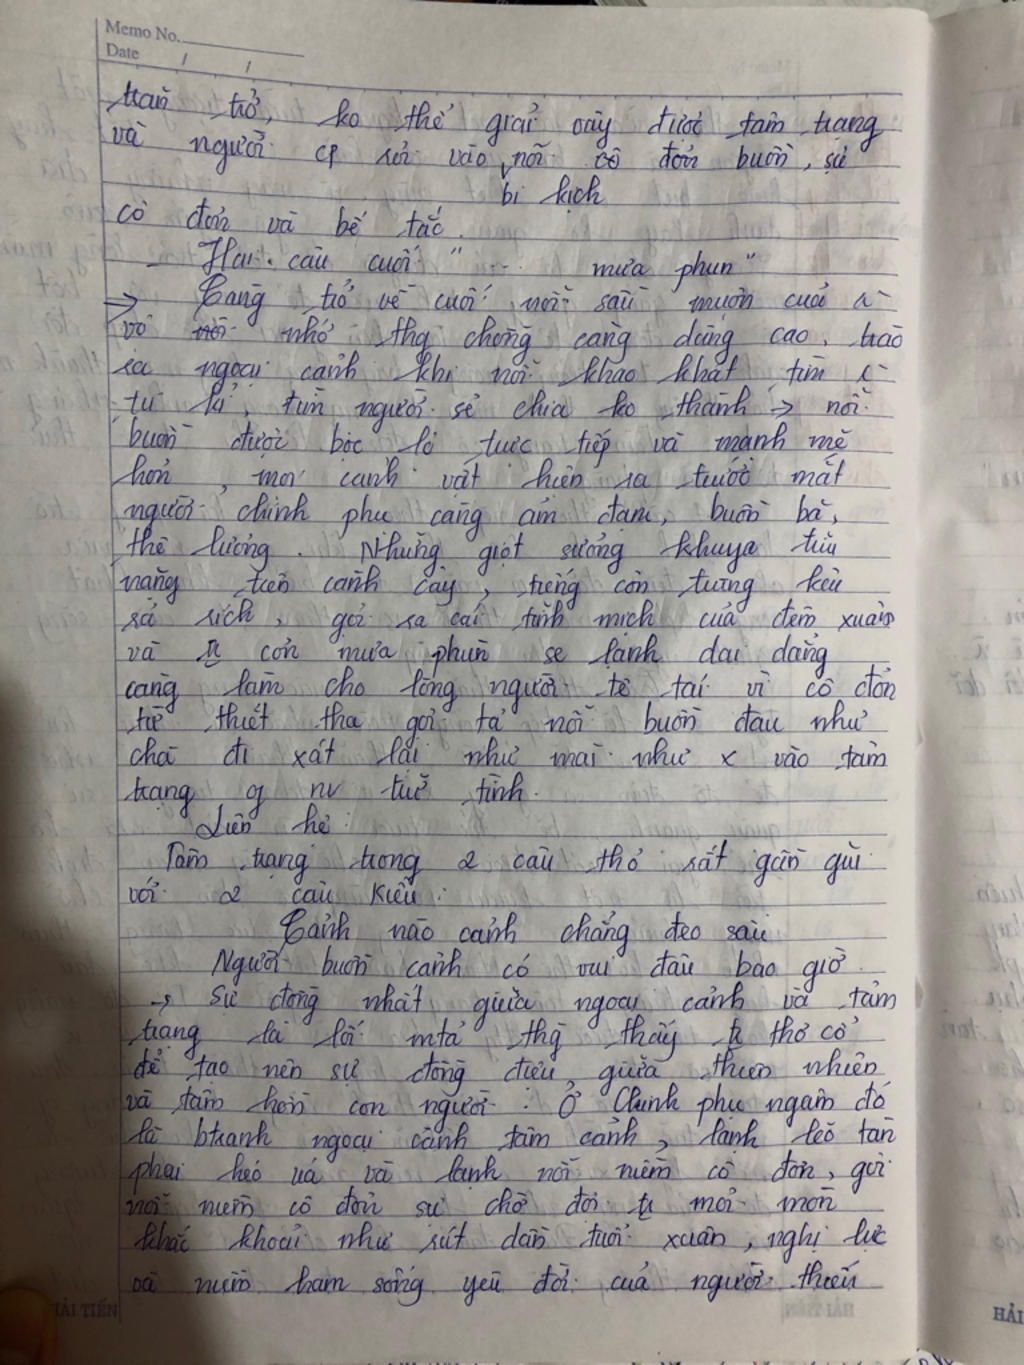 Memo No.
Date / /
trăn trở, ko thể giải bày được tâm trạng
và người cp rơi vào nỗi cô đơn buồn, sự
bi kịch
cô đơn và bế tắc.
- Hai câu cuối "... mưa phun"
→ Càng trở về cuối nỗi sầu muộn của
vò nhớ thg chồng càng dâng cao, trào
ra ngoại cảnh khi nỗi khao khát tìm
tri kỉ, tìm người sẻ chia ko thành → nỗi
buồn được bộc lộ trực tiếp và mạnh mẽ
hơn, mọi cảnh vật hiện ra trước mắt
người chinh phụ càng ảm đạm, buồn bã,
thê lương. Những giọt sương khuya trĩu
nặng trên cành cây, tiếng côn trùng kêu
rả rích, gợi ra cái tĩnh mịch của đêm xuân
và tr cơn mưa phùn se lạnh dai dẳng
càng làm cho lòng người tê tái vì cô đơn
từ thiết tha gợi tả nỗi buồn đau như
chà đi xát lại như mài như x vào tâm
trạng of nv trữ tình.
Liên hệ:
Tâm trạng trong 2 câu thơ rất gần gũi
với 2 câu Kiều:
Cảnh nào cảnh chẳng đeo sầu
Người buồn cảnh có vui đâu bao giờ
→ Sự đồng nhất giữa ngoại cảnh và tâm
trạng là lối mtả thg thấy tr thơ cổ
để tạo nên sự đồng điệu giữa thiên nhiên
và tâm hồn con người. Ở Chinh phụ ngâm đó
là btranh ngoại cảnh tâm cảnh, lạnh lẽo tàn
phai héo úa và lạnh nỗi niềm cô đơn, gợi
nỗi niềm cô đơn sự chờ đợi tr mỏi mòn
khắc khoải như rút dần tuổi xuân, nghị lực
và niềm ham sống yêu đời của người thiếu
HẢI TIẾN
HẢI